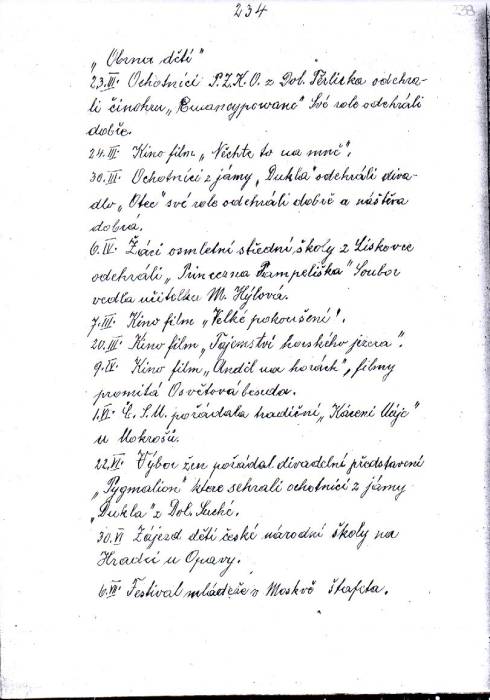 234
238
„Obrna dětí"
23.III. Ochotníci P.Z.K.O. z Dol. Těrlicka odehrá-
li činohru „Emancypowane" Své role odehráli
dobře.
24.III. Kino film „Nechte to na mně".
30.III. Ochotníci z jámy „Dukla" odehráli diva-
dlo „Otec" své role odehráli dobře a náštěva
dobrá.
6.IV. Žáci osmletní střední školy z Liskovce
odehráli „Princezna Pampeliška" Soubor
vedla učitelka M. Hýlová.
7.III. Kino film „Velké pokoušení".
20.III. Kino film „Tajemství horského jezera".
9.IV. Kino film „Anděl na horách", filmy
promítá Osvětová beseda.
1.VI. Č.S.M. pořádala tradiční „Kácení Máje"
u Mokrošů.
22.VI. Výbor žen pořádal divadelní představení
„Pygmalion" které sehráli ochotníci z jámy
„Dukla" z Dol. Suché.
30.VI Zájezd dětí české národní školy na
Hradci u Opavy.
6.VII. Festival mládeže v Moskvě Štafeta.